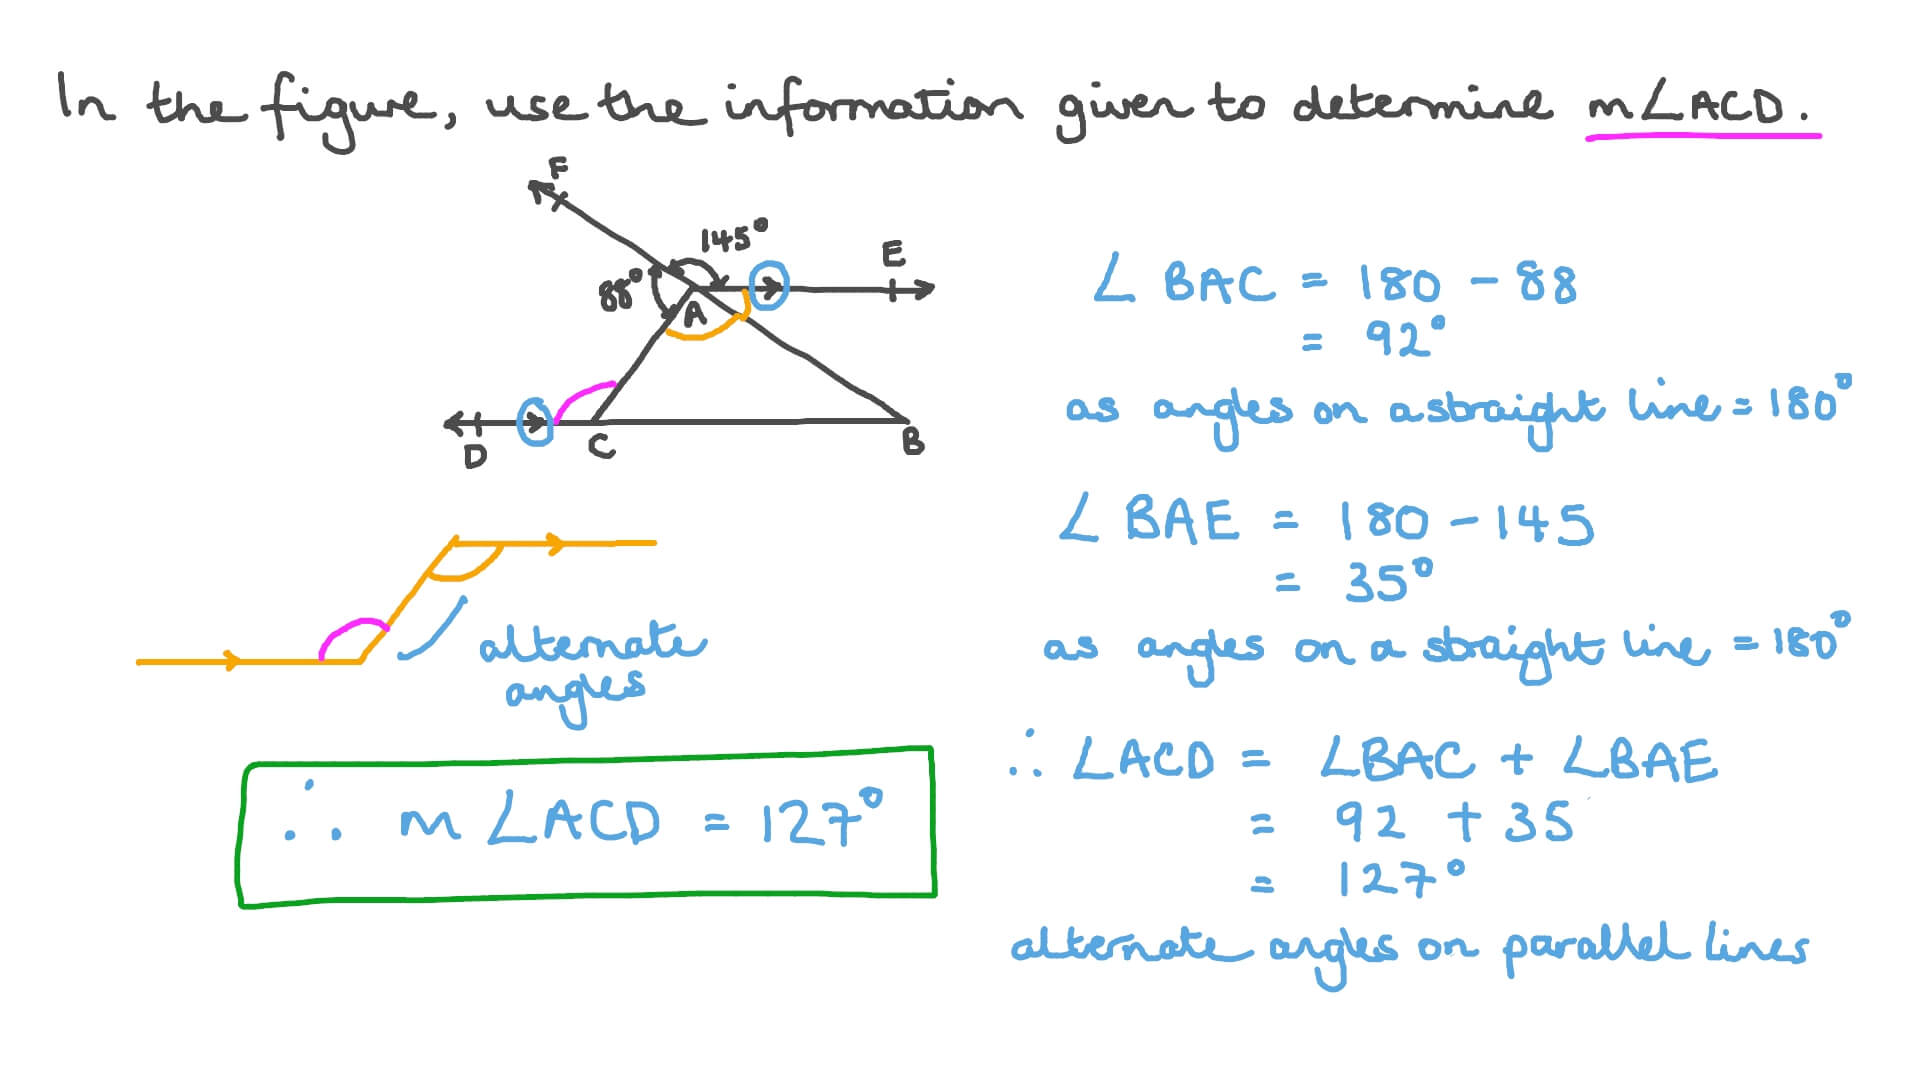 In the figure, use the information given to determine m∠ACD.
F
145°
E
88°
A
D
C
B
∠BAC = 180 - 88
= 92°
as angles on a straight line = 180°
∠BAE = 180 - 145
= 35°
as angles on a straight line = 180°
alternate
angles
∴ ∠ACD = ∠BAC + ∠BAE
= 92 + 35
= 127°
alternate angles on parallel lines
∴ m∠ACD = 127°